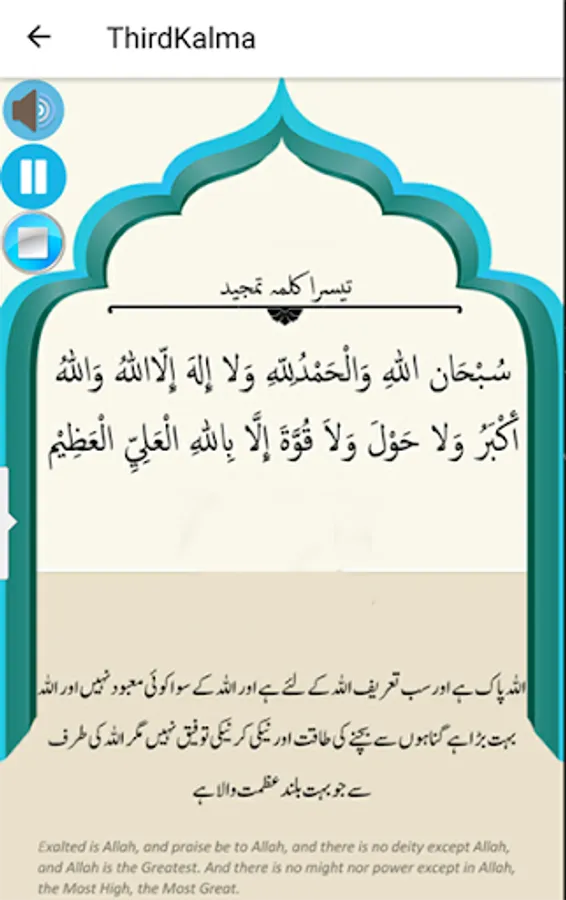 ThirdKalma
تیسرا کلمہ تمجید
سُبْحَان اللهِ وَالْحَمْدُلِلّهِ وَلا إِلهَ إِلّااللهُ وَاللهُ
أَكْبَرُ وَلا حَوْلَ وَلاَ قُوَّةَ إِلَّا بِاللهِ الْعَلِيِّ الْعَظِيْم
اللہ پاک ہے اور سب تعریف اللہ کے لئے ہے اور اللہ کے سوا کوئی معبود نہیں اور اللہ
بہت بڑا ہے گناہوں سے بچنے کی طاقت اور نیکی کر نیکی توفیق نہیں مگر اللہ کی طرف
سے جو بہت بلند عظمت والا ہے
Exalted is Allah, and praise be to Allah, and there is no deity except Allah,
and Allah is the Greatest. And there is no might nor power except in Allah,
the Most High, the Most Great.